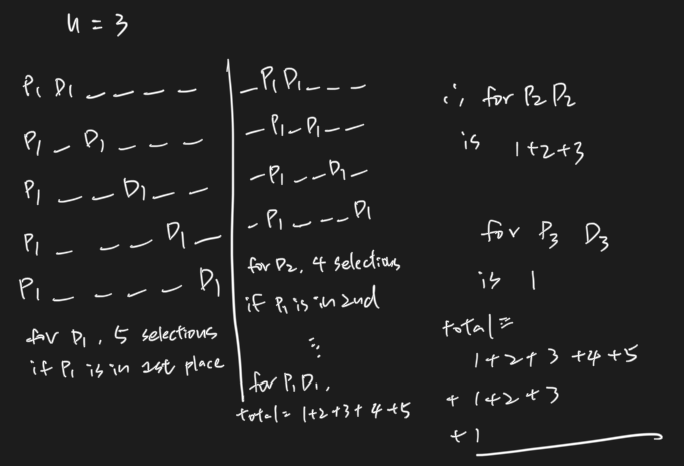 n = 3
P₁ D₁ _ _ _ _
P₁ _ D₁ _ _ _
P₁ _ _ D₁ _ _
P₁ _ _ _ D₁ _
P₁ _ _ _ _ D₁
for D₁, 5 selections
if P₁ is in 1st place
_ P₁ D₁ _ _ _
_ P₁ _ D₁ _ _
_ P₁ _ _ D₁ _
_ P₁ _ _ _ D₁
for D₂, 4 selections
if P₁ is in 2nd
⋮
for P₁D₁,
total = 1+2+3+4+5
∴ for P₂ D₂
is 1+2+3
for P₃ D₃
is 1
total =
1+2+3+4+5
+ 1+2+3
+ 1